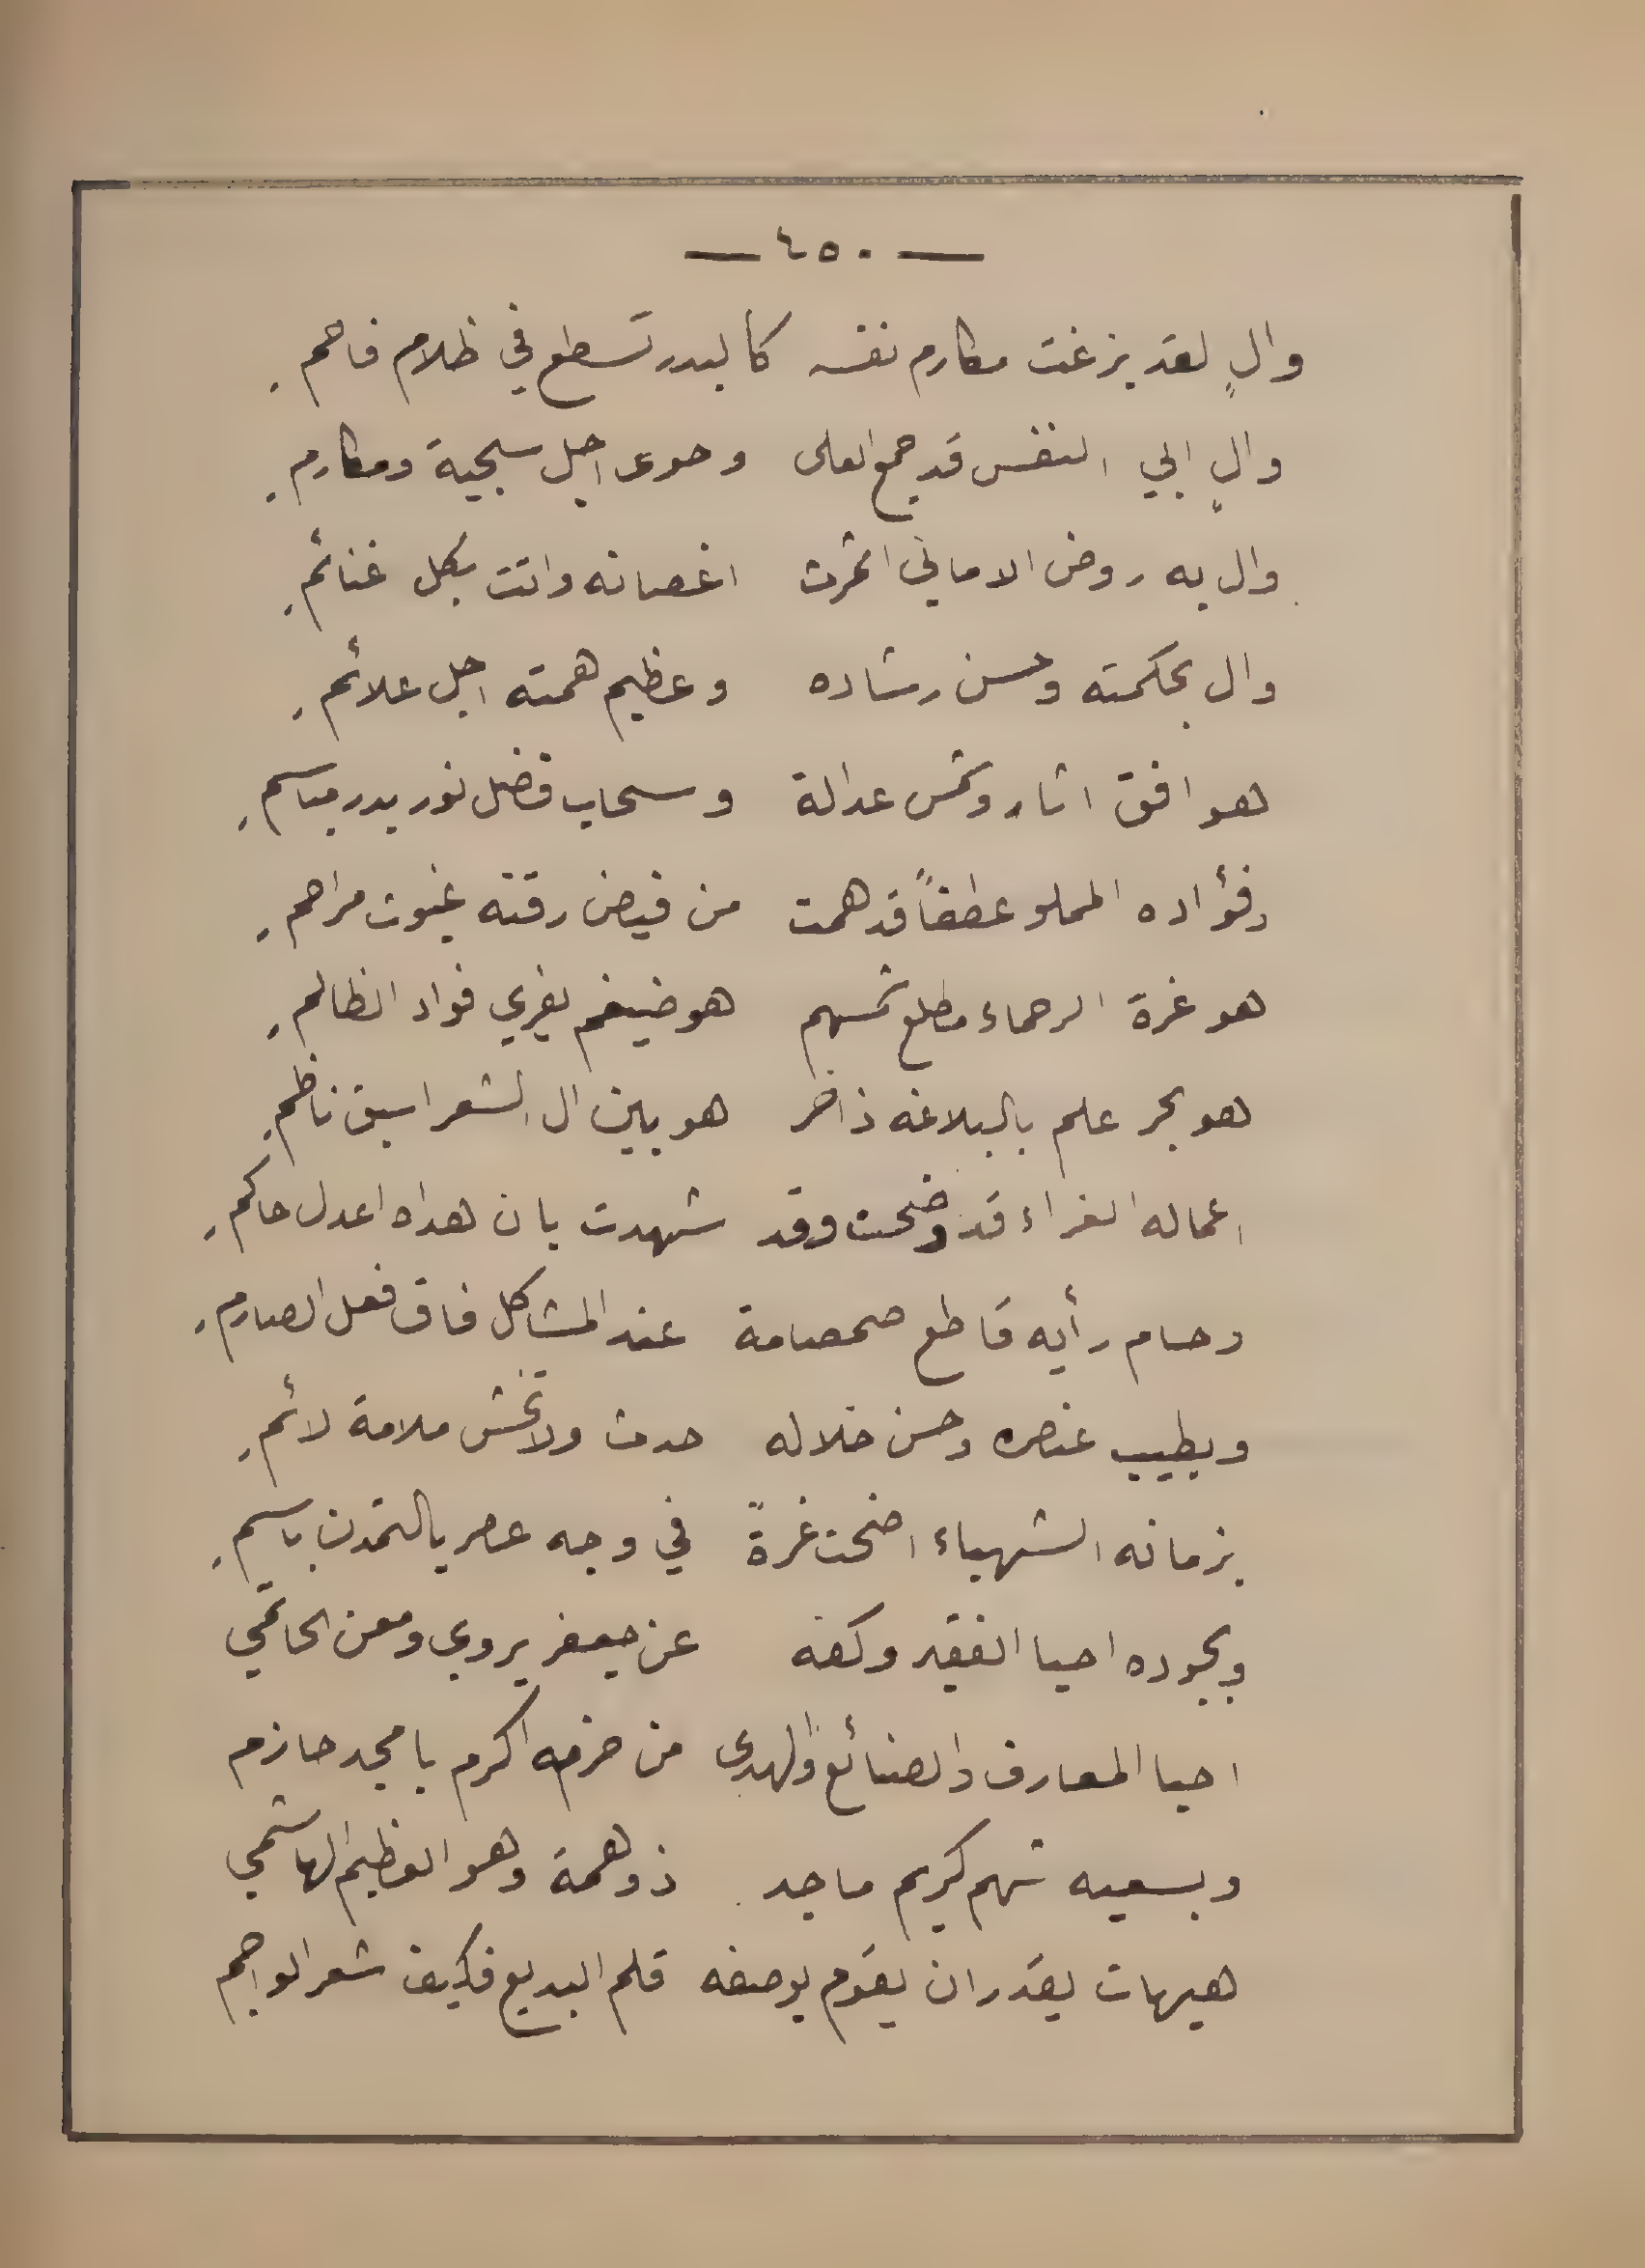 — ٤٥٠ —
والٍ لقد بزغت مكارم نفسه كالبدر تسطع في ظلام فاحم
والٍ ابي النفس قد جمع العلى وحوى اجل سجية ومكارم
وال به روض الاماني اثمرت اغصانه واتت بكل غنائم
وال بحكمته وحسن رشاده وعظيم همته اجل علائم
هو افق اثار وشمس عدالة وسحاب فضل نور بدر مباسم
وفؤاده المملو عطفاً قد همت من فيض رقته غيوث مراحم
هو غرة الرحماء مطلع شمسهم هو ضيغم يفري فواد الظالم
هو بحر علم بالبلاغه ذاخر هو بين ال الشعر اسبق ناظم
اعماله الغراء قد وضحت وقد شهدت بان هداه اعدل حاكم
وحسام رأيه قاطع صمصامة عند المشاكل فاق فعل الصارم
وبطيب عنصره وحسن خلاله حدث ولا تخش ملامة لائم
بزمانه الشهباء اضحت غرةً في وجه عصر بالتمدن باسم
وبجوده احيا الفقير وكفه عن جعفر يروي ومعن الحاتمي
احيا المعارف والصنائع والهدى من حزمه اكرم بامجد حازم
وبسعيه شهم كريم ماجد ذو همة وهو العظيم الهاشمي
هيهات يقدر ان يقوم بوصفه قلم البديع فكيف شعر الواجم